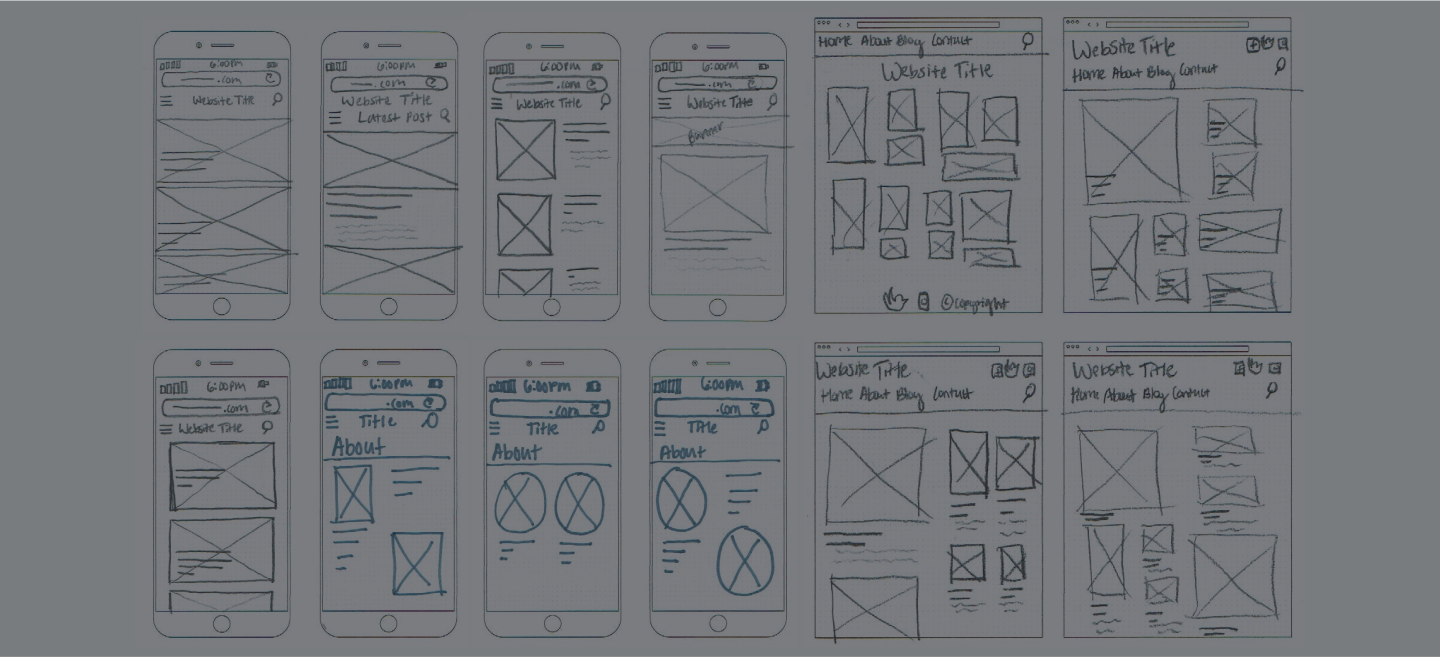 6:00PM
.com
Website Title
6:00PM
.com
Website Title
Latest Post
6:00PM
.com
Website Title
6:00PM
.com
Website Title
Banner
Home About Blog Contact
Website Title
©Copyright
Website Title
Home About Blog Contact
6:00PM
.com
Website Title
6:00PM
.com
Title
About
6:00PM
.com
Title
About
6:00PM
.com
Title
About
Website Title
Home About Blog Contact
Website Title
Home About Blog Contact